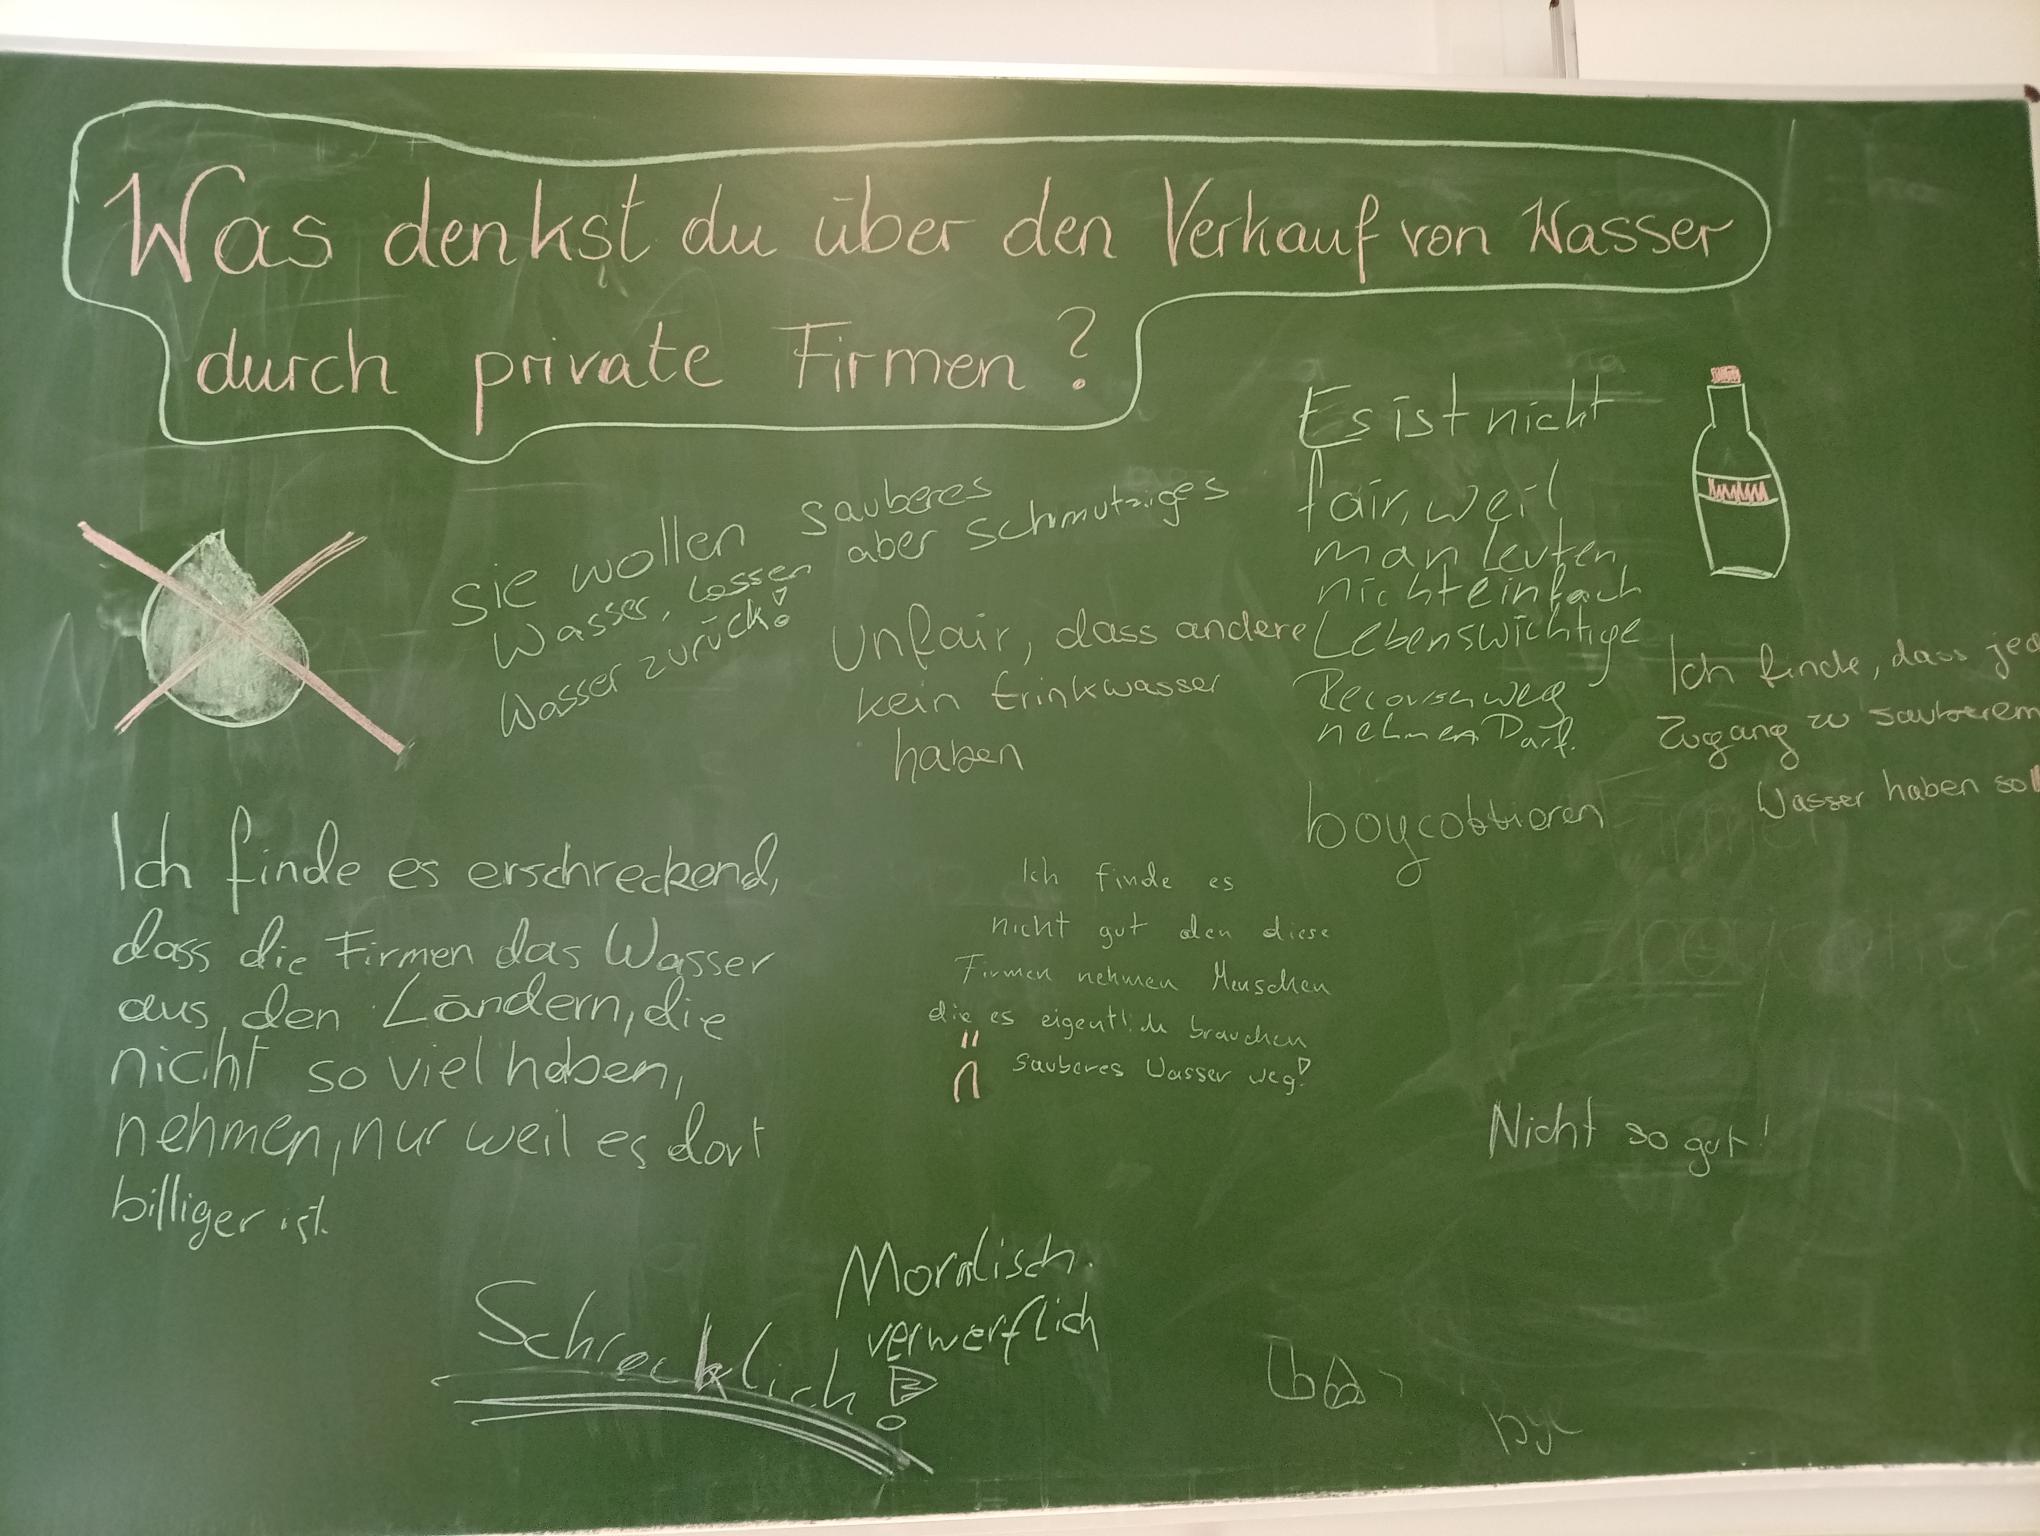 Was denkst du über den Verkauf von Wasser
durch private Firmen?
Sie wollen sauberes
Wasser, lassen aber schmutziges
Wasser zurück!
Unfair, dass andere
kein trinkwasser
haben
Es ist nicht
fair, weil
man leuten
nicht einfach
Lebenswichtige
weg
nehmen Darf.
boycottieren
Ich finde, dass
Zugang zu sauberem
Wasser haben
Ich finde es erschreckend,
dass die Firmen das Wasser
aus den Ländern, die
nicht so viel haben,
nehmen, nur weil es dort
billiger ist.
Ich finde es
nicht gut den diese
Firmen nehmen Menschen
die es eigentlich brauchen
sauberes Wasser weg!
Nicht so gut!
Schrecklich!
Moralisch
verwerflich
Bye